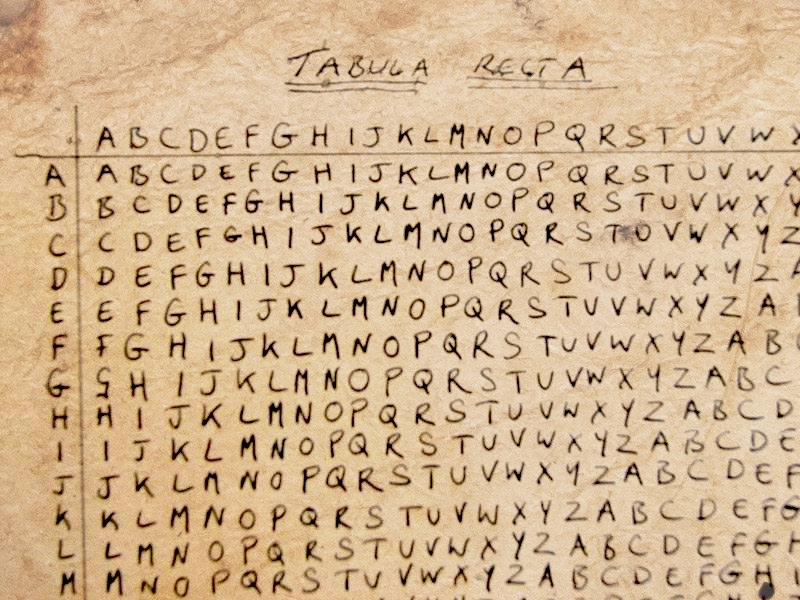 TABULA RECTA
A B C D E F G H I J K L M N O P Q R S T U V W X
A A B C D E F G H I J K L M N O P Q R S T U V W X
B B C D E F G H I J K L M N O P Q R S T U V W X Y
C C D E F G H I J K L M N O P Q R S T U V W X Y Z
D D E F G H I J K L M N O P Q R S T U V W X Y Z A
E E F G H I J K L M N O P Q R S T U V W X Y Z A B
F F G H I J K L M N O P Q R S T U V W X Y Z A B C
G G H I J K L M N O P Q R S T U V W X Y Z A B C
H H I J K L M N O P Q R S T U V W X Y Z A B C D
I I J K L M N O P Q R S T U V W X Y Z A B C D E
J J K L M N O P Q R S T U V W X Y Z A B C D E F
K K L M N O P Q R S T U V W X Y Z A B C D E F G
L L M N O P Q R S T U V W X Y Z A B C D E F G H
M M N O P Q R S T U V W X Y Z A B C D E F G H I